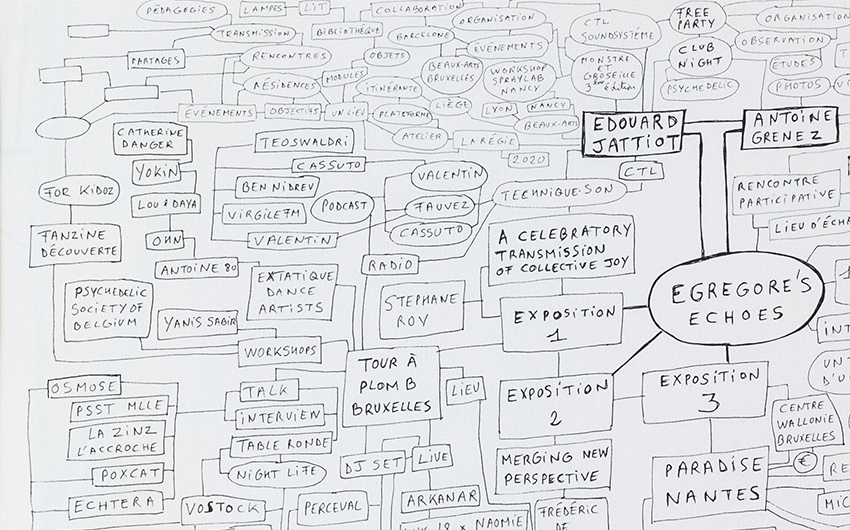 PÉDAGOGIES
LAMPES
L'IT
COLLABORATION
TRANSMISSION
BIBLIOTHÈQUE
BARCELONE
ORGANISATION
CTL
SOUNDSYSTÈME
FREE
PARTY
ORGANISATION
OBSERVATION
PARTAGES
RENCONTRES
OBJETS
ÉVÉNEMENTS
BEAUX-ARTS
BRUXELLES
WORKSHOP
SPRAYLAB
NANCY
MONSTRE
ET
GROSEILLE
3ème édition
CLUB
NIGHT
ÉTUDES
RÉSIDENCES
MODULES
ITINÉRANTE
PSYCHEDELIC
PHOTOS
ÉVÉNEMENTS
OBJECTIFS
UN LIEU
PLATEFORME
LIÈGE
LYON
NANCY
BEAUX-ARTS
ATELIER
LA RÉGIE
2020
EDOUARD
JATTIOT
ANTOINE
GRENEZ
CATHERINE
DANGER
TEOSWALDRI
CASSUTO
VALENTIN
CTL
YOKIN
BEN NIDREV
TECHNIQUE-SON
RENCONTRE
PARTICIPATIVE
FOR KIDOZ
LOU & DAYA
VIRGILE FM
PODCAST
FAUVEZ
LIEU D'ÉCHA
FANZINE
DÉCOUVERTE
OHN
VALENTIN
CASSUTO
A CELEBRATORY
TRANSMISSION
OF COLLECTIVE JOY
ANTOINE 80
RADIO
EXTATIQUE
DANCE
ARTISTS
PSYCHEDELIC
SOCIETY OF
BELGIUM
YANIS SABIR
STEPHANE
ROY
EXPOSITION
1
EGREGORE'S
ECHOES
WORKSHOPS
TOUR À
PLOMB
BRUXELLES
LIEU
EXPOSITION
2
EXPOSITION
3
OSMOSE
PSST MLLE
LA ZINZ
L'ACCROCHE
POXCAT
ECHTERA
TALK
INTERVIEW
TABLE RONDE
NIGHT LIFE
VOSTOCK
PERCEVAL
DJ SET
LIVE
ARKANAR
NAOMIE
MERGING NEW
PERSPECTIVE
FRÉDÉRIC
DE
CENTRE
WALLONIE
BRUXELLES
€
PARADISE
NANTES